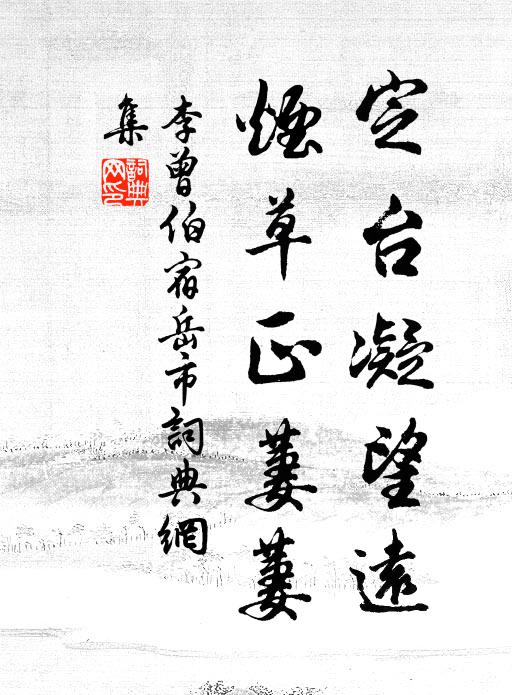 定台凝望遠
煙草正萋萋
李曾伯宿岳市詞典網
集
詞典
网印